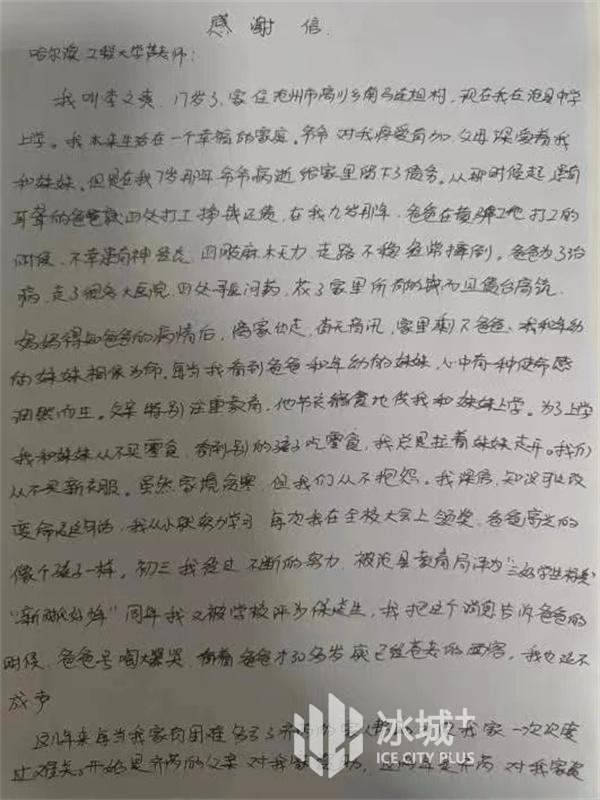 感谢信
哈尔滨工程大学芦老师：
我叫李文爽，17岁了，家住沧州市高川乡南马连坦村，现在我在沧县中学
上学。我本来生活在一个幸福的家庭。爷爷对我疼爱有加，父母深爱着我
和妹妹。但是在我7岁那年爷爷病逝给家里留下了债务。从那时候起患有
耳聋的爸爸就四处打工挣钱还债，在我九岁那年，爸爸在黄骅工地打工的
时候，不幸患有神经炎，四肢麻木无力，走路不稳经常摔倒。爸爸为了治
病，走了很多大医院，四处寻医问药，花了家里所有的钱而且债台高筑。
妈妈得知爸爸的病情后，离家出走，杳无音讯，家里剩下爸爸、我和年幼
的妹妹相依为命。每当我看到爸爸和年幼的妹妹，心中有一种使命感
油然而生。父亲特别注重教育，他节衣缩食地供我和妹妹上学。为了上学
我和妹妹从不买零食，看到别的孩子吃零食，我总是拉着妹妹走开。我们
从不买新衣服。虽然家境贫寒，但我们从不抱怨。我深信，知识可以改
变命运的，我从小就努力学习，每次我在全校大会上领奖，爸爸高兴的
像个孩子一样。初三我经过不断的努力，被沧县教育局评为“三好学生标兵”
“新时代好少年”同年我又被学校评为保送生，我把这个消息告诉爸爸的
时候，爸爸号啕大哭，看着爸爸才30多岁就已经苍老的面容，我也泣不
成声
这几年来每当我家有困难
我家一次次度
过难关。开始是齐芮的父亲对我
对我家
冰城+
ICE CITY PLUS